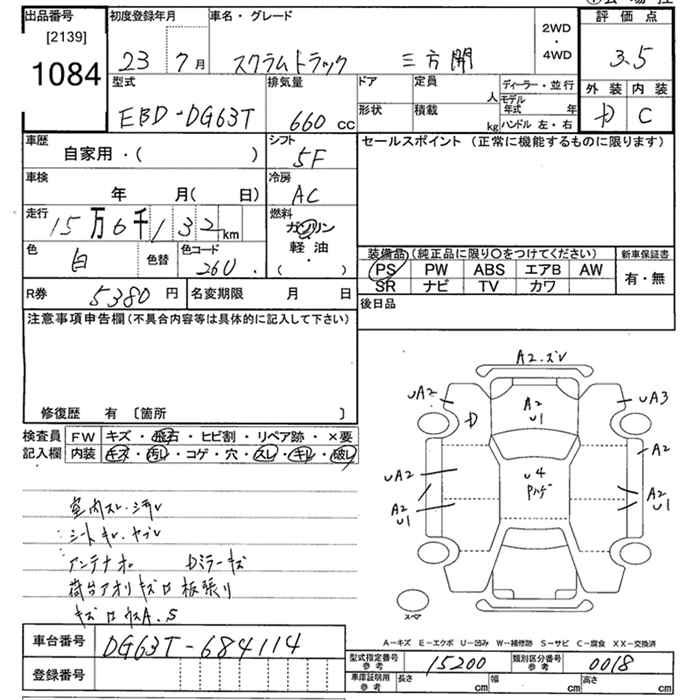 出品番号
[2139]
1084
初度登録年月
23 7月
車名・グレード
スクラムトラック 三方開
2WD
・
4WD
評価点
3.5
外装 内装
D C
型式
EBD-DG63T
排気量
660 cc
ドア
定員
人
形状
積載
kg
ディーラー・並行
モデル年式 年
ハンドル 左・右
車歴
自家用・( )
シフト
5F
車検
年 月( 日)
冷房
AC
走行
15万6千132km
燃料
ガソリン
軽・油
( ・ )
色
白
色替
色コード
26U
R券 5380円
名変期限 月 日
セールスポイント (正常に機能するものに限ります)
装備品(純正品に限り〇をつけてください)
PS PW ABS エアB AW
SR ナビ TV カワ
新車保証書
有・無
後日品
注意事項申告欄(不具合内容等は具体的に記入して下さい)
修復歴 有 〔箇所 〕
検査員 FW キズ・飛石・ヒビ割・リペア跡・×要
記入欄 内装 キズ・汚レ・コゲ・穴・スレ・キレ・破レ
室内スレ・ヨゴレ
シートキレ・ヤブレ
アンテナオレ Dミラーキズ
荷台アオリキズ凹 板張り
キズ凹ウスA.S
A2.ズレ
UA2
D
A2
U1
UA3
A2
U4
Pハゲ
UA2
A2
U1
A2
U1
スペア
A-キズ E-エクボ U-凹み W-補修跡 S-サビ C-腐食 XX-交換済
車台番号 DG63T-684114
登録番号
型式指定番号
参考
15200
類別区分番号
参考
0018
車庫証明用
参考
長さ cm 幅 cm 高さ cm